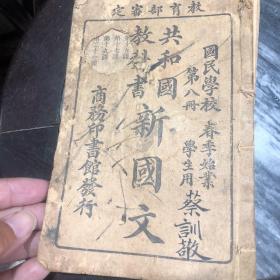 教育部審定
國民學校
春季始業
第八冊
學生用
蔡訓敬
共和國
教科書
新國文
商務印書館發行